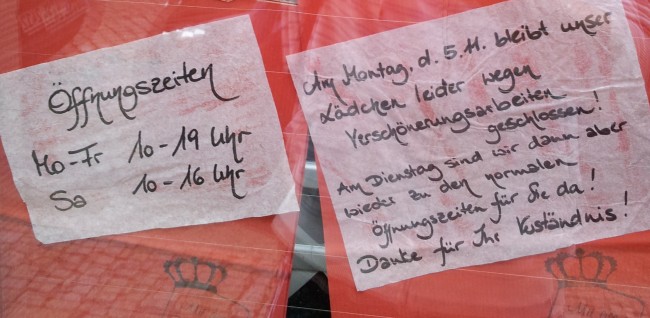 Öffnungszeiten
Mo-Fr 10-19 Uhr
Sa 10-16 Uhr
Am Montag, d. 5.11. bleibt unser
Lädchen leider wegen
Verschönerungsarbeiten
geschlossen!
Am Dienstag sind wir dann aber
wieder zu den normalen
Öffnungszeiten für Sie da!
Danke für Ihr Verständnis!